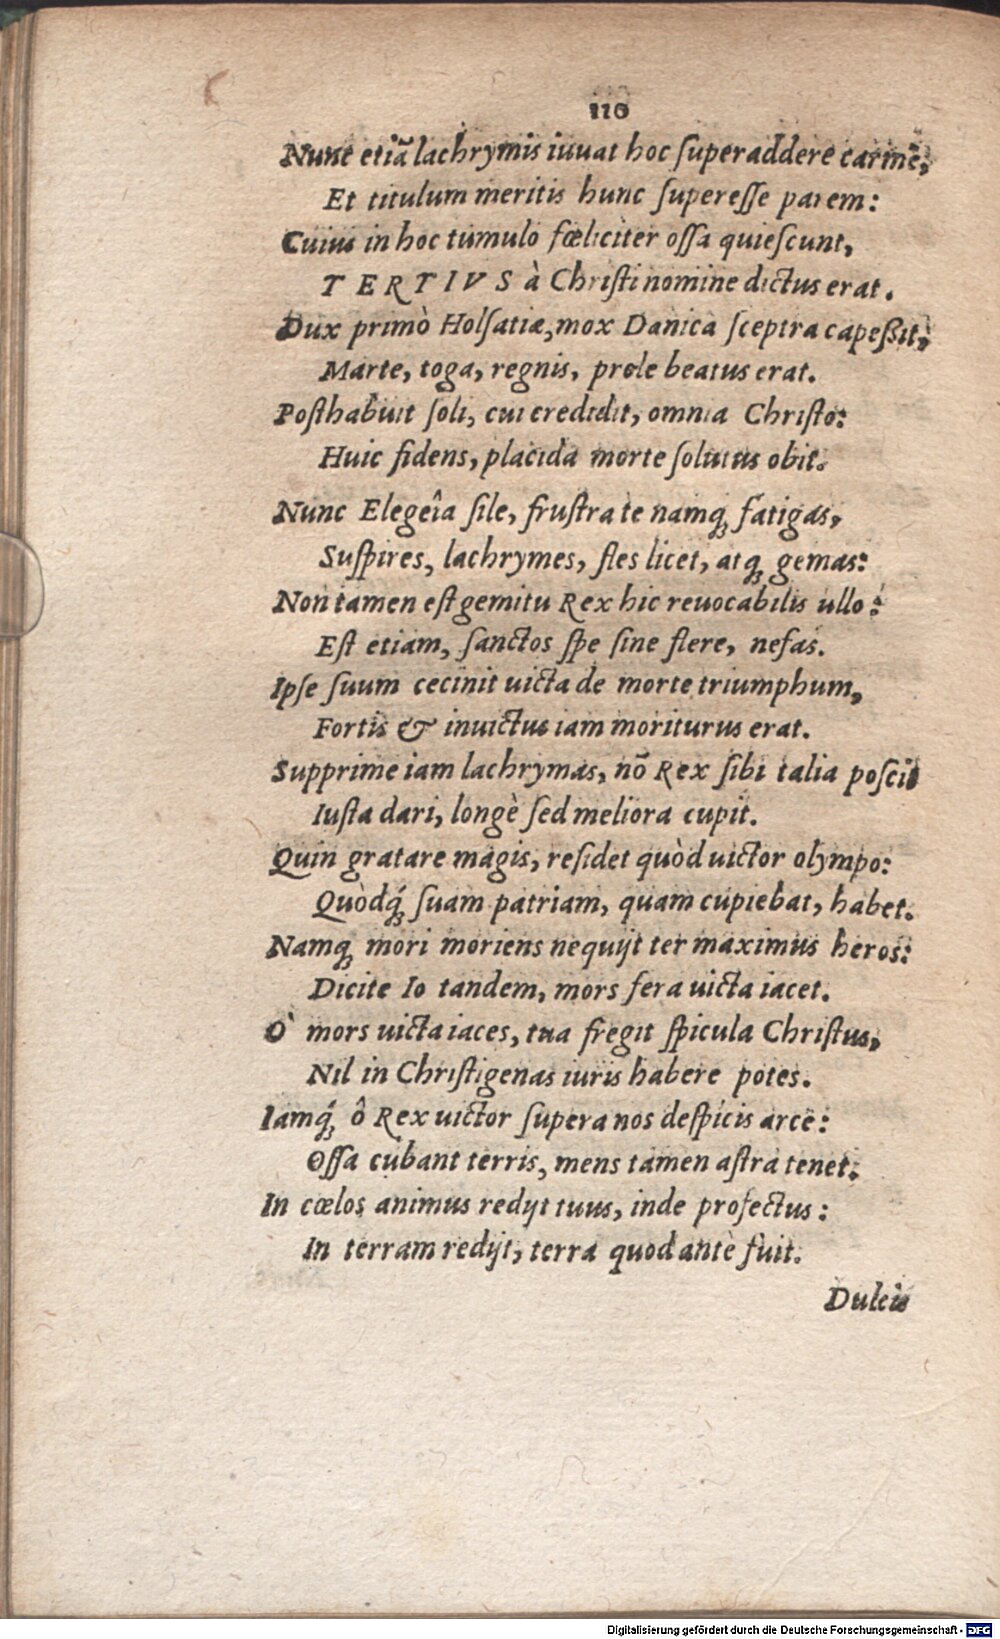 110
Nunc etiā lachrymis iuuat hoc ſuperaddere carmē,
Et titulum meritis hunc ſupereſſe parem:
Cuius in hoc tumulo fœliciter oſſa quieſcunt,
TERTIVS à Chriſti nomine dictus erat.
Dux primò Holſatiæ, mox Danica ſceptra capeßit,
Marte, toga, regnis, prole beatus erat.
Poſthabuit ſoli, cui credidit, omnia Chriſto:
Huic fidens, placida morte ſolutus obit.
Nunc Elegeîa ſile, fruſtra te namq́ꝫ fatigas,
Suſpires, lachrymes, fles licet, atqꝫ gemas:
Non tamen eſt gemitu Rex hic reuocabilis ullo:
Eſt etiam, ſanctos ſpe ſine flere, nefas.
Ipſe ſuum cecinit uicta de morte triumphum,
Fortis & inuictus iam moriturus erat.
Supprime iam lachrymas, nō Rex ſibi talia poſcit
Iuſta dari, longè ſed meliora cupit.
Quin gratare magis, reſidet quòd uictor olympo:
Quòdq́ꝫ ſuam patriam, quam cupiebat, habet.
Namqꝫ mori moriens nequijt ter maximus heros:
Dicite Io tandem, mors fera uicta iacet.
O' mors uicta iaces, tua fregit ſpicula Chriſtus,
Nil in Chriſtigenas iuris habere potes.
Iamq́ꝫ ô Rex uictor ſupera nos deſpicis arce:
Oſſa cubant terris, mens tamen aſtra tenet:
In cœlos animus redijt tuus, inde profectus:
In terram redijt, terra quod antè fuit.
Dulcis
Digitalisierung gefördert durch die Deutsche Forschungsgemeinschaft - DFG